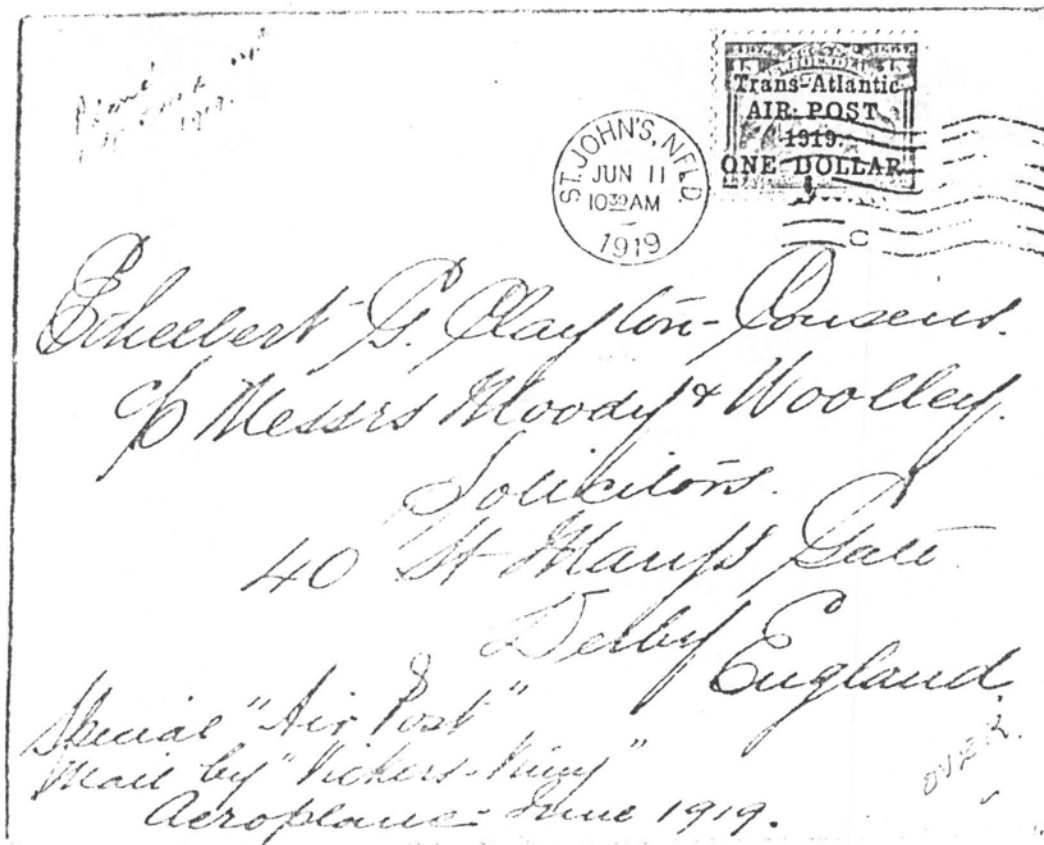 1919.
Trans-Atlantic
AIR POST
1919.
ONE DOLLAR
ST. JOHN'S, NFLD.
JUN 11
10 30 AM
1919
C
Ethelbert G. Clayton-Cousens.
c/o Messrs Moody & Woolley.
Solicitors.
40 St Mary's Gate
Derby
England.
Special "Air Post"
Mail by "Vickers-Vimy"
Aeroplane- June 1919.
OVER.